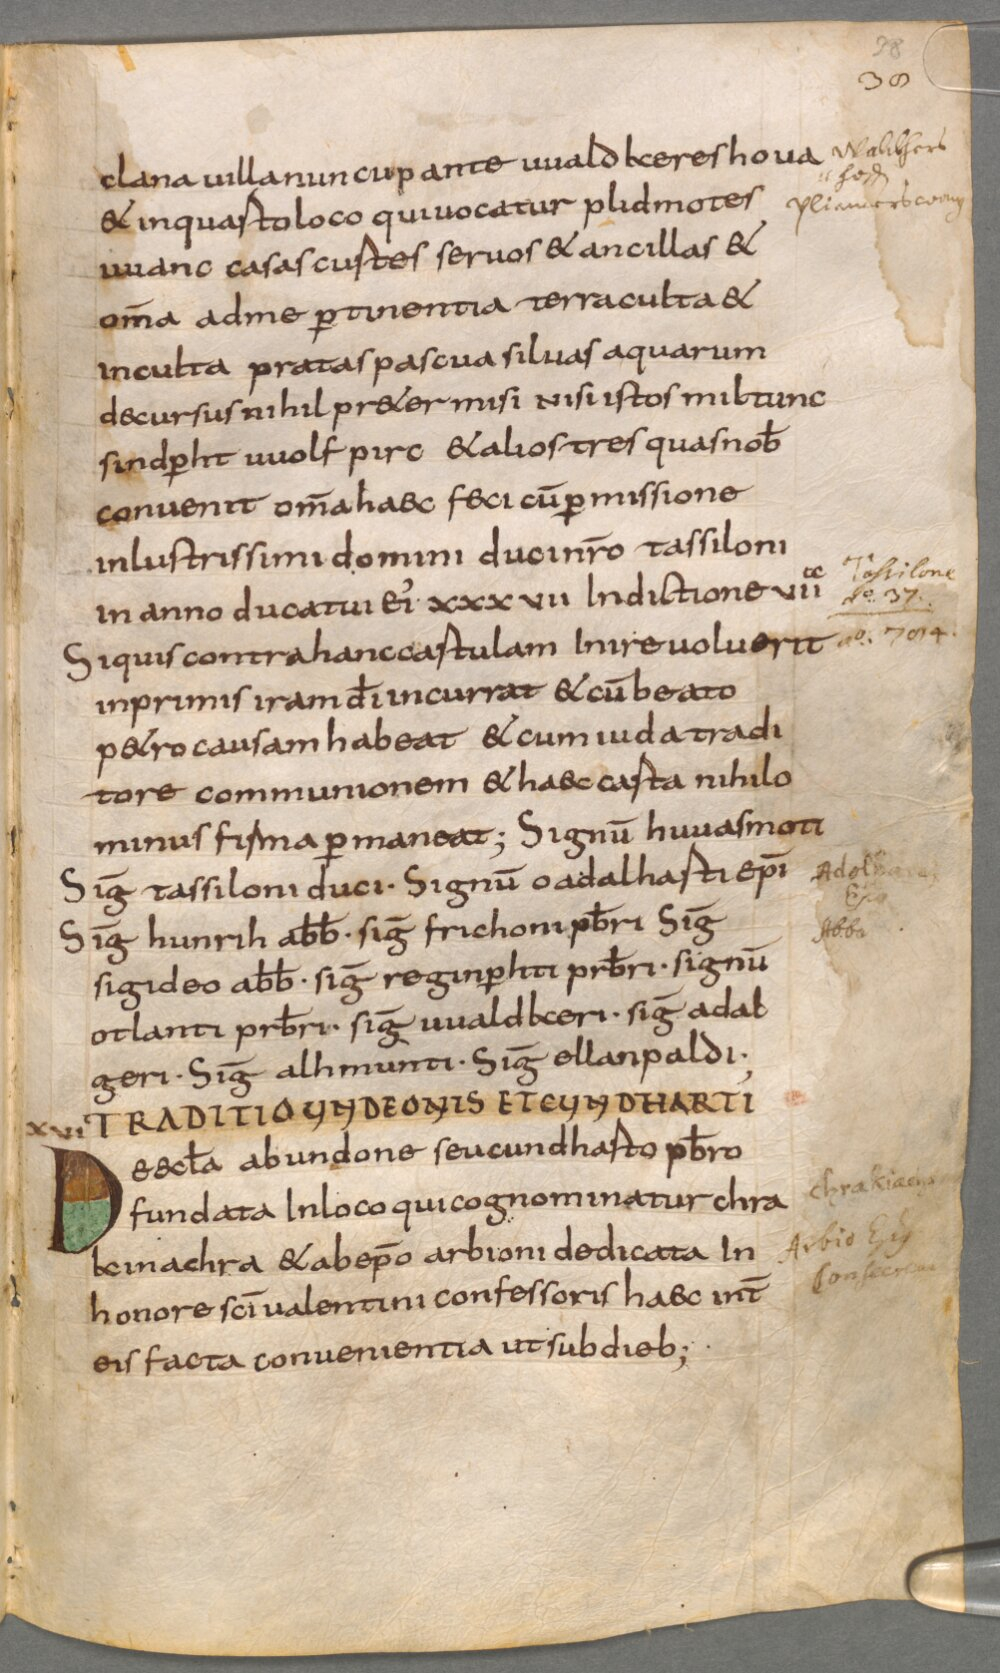 38
38
clana uilla nuncupante uuald kereshoua
& in quasto loco qui uocatur plidmotes
uuanc casas custes seruos & ancillas &
om̄a adme ꝑtinentia terra culta &
inculta pratas pascua siluas aquarum
decursus nihil pr&ermisi nisi istos miltunc
sindꝑht uuolfpirc & alios tres quas nob̄
conuenit om̄a haec feci cū ꝑmissione
inlustrissimi domini duci nr̄o tassiloni
in anno ducatui ei' xxxvii Indictione vii
Siquis contra hanc castulam Inire uoluerit
inprimis iram dī incurrat & cū beato
p&ro causam habeat & cum iuda tradi
tore communionem & haec casta nihilo
minus fisma ꝑmaneat; Signū huuasmoti
Siḡ tassiloni duci· Signū oadalhasti ep̄i
Siḡ hunrih abb̄· siḡ frichoni pb̄ri Siḡ
sigideo abb̄· siḡ reginꝑhti prb̄ri· signū
otlanti prb̄ri· siḡ uualdkeri· siḡ adal
geri· Siḡ alhmunti· Siḡ ellanpaldi·
xvi TRADITIO UNDEONIS ET CUNDHARTI
De eccl̄a ab undone seu cundhasto pb̄ro
fundata In loco qui cognominatur chra
kinachra & ab ep̄o arbioni dedicata In
honore sc̄i ualentini confessoris haec int̄
eis facta conuenientia ut sub dieb;
Tassilone
ao. 37.
Abba
Arbio